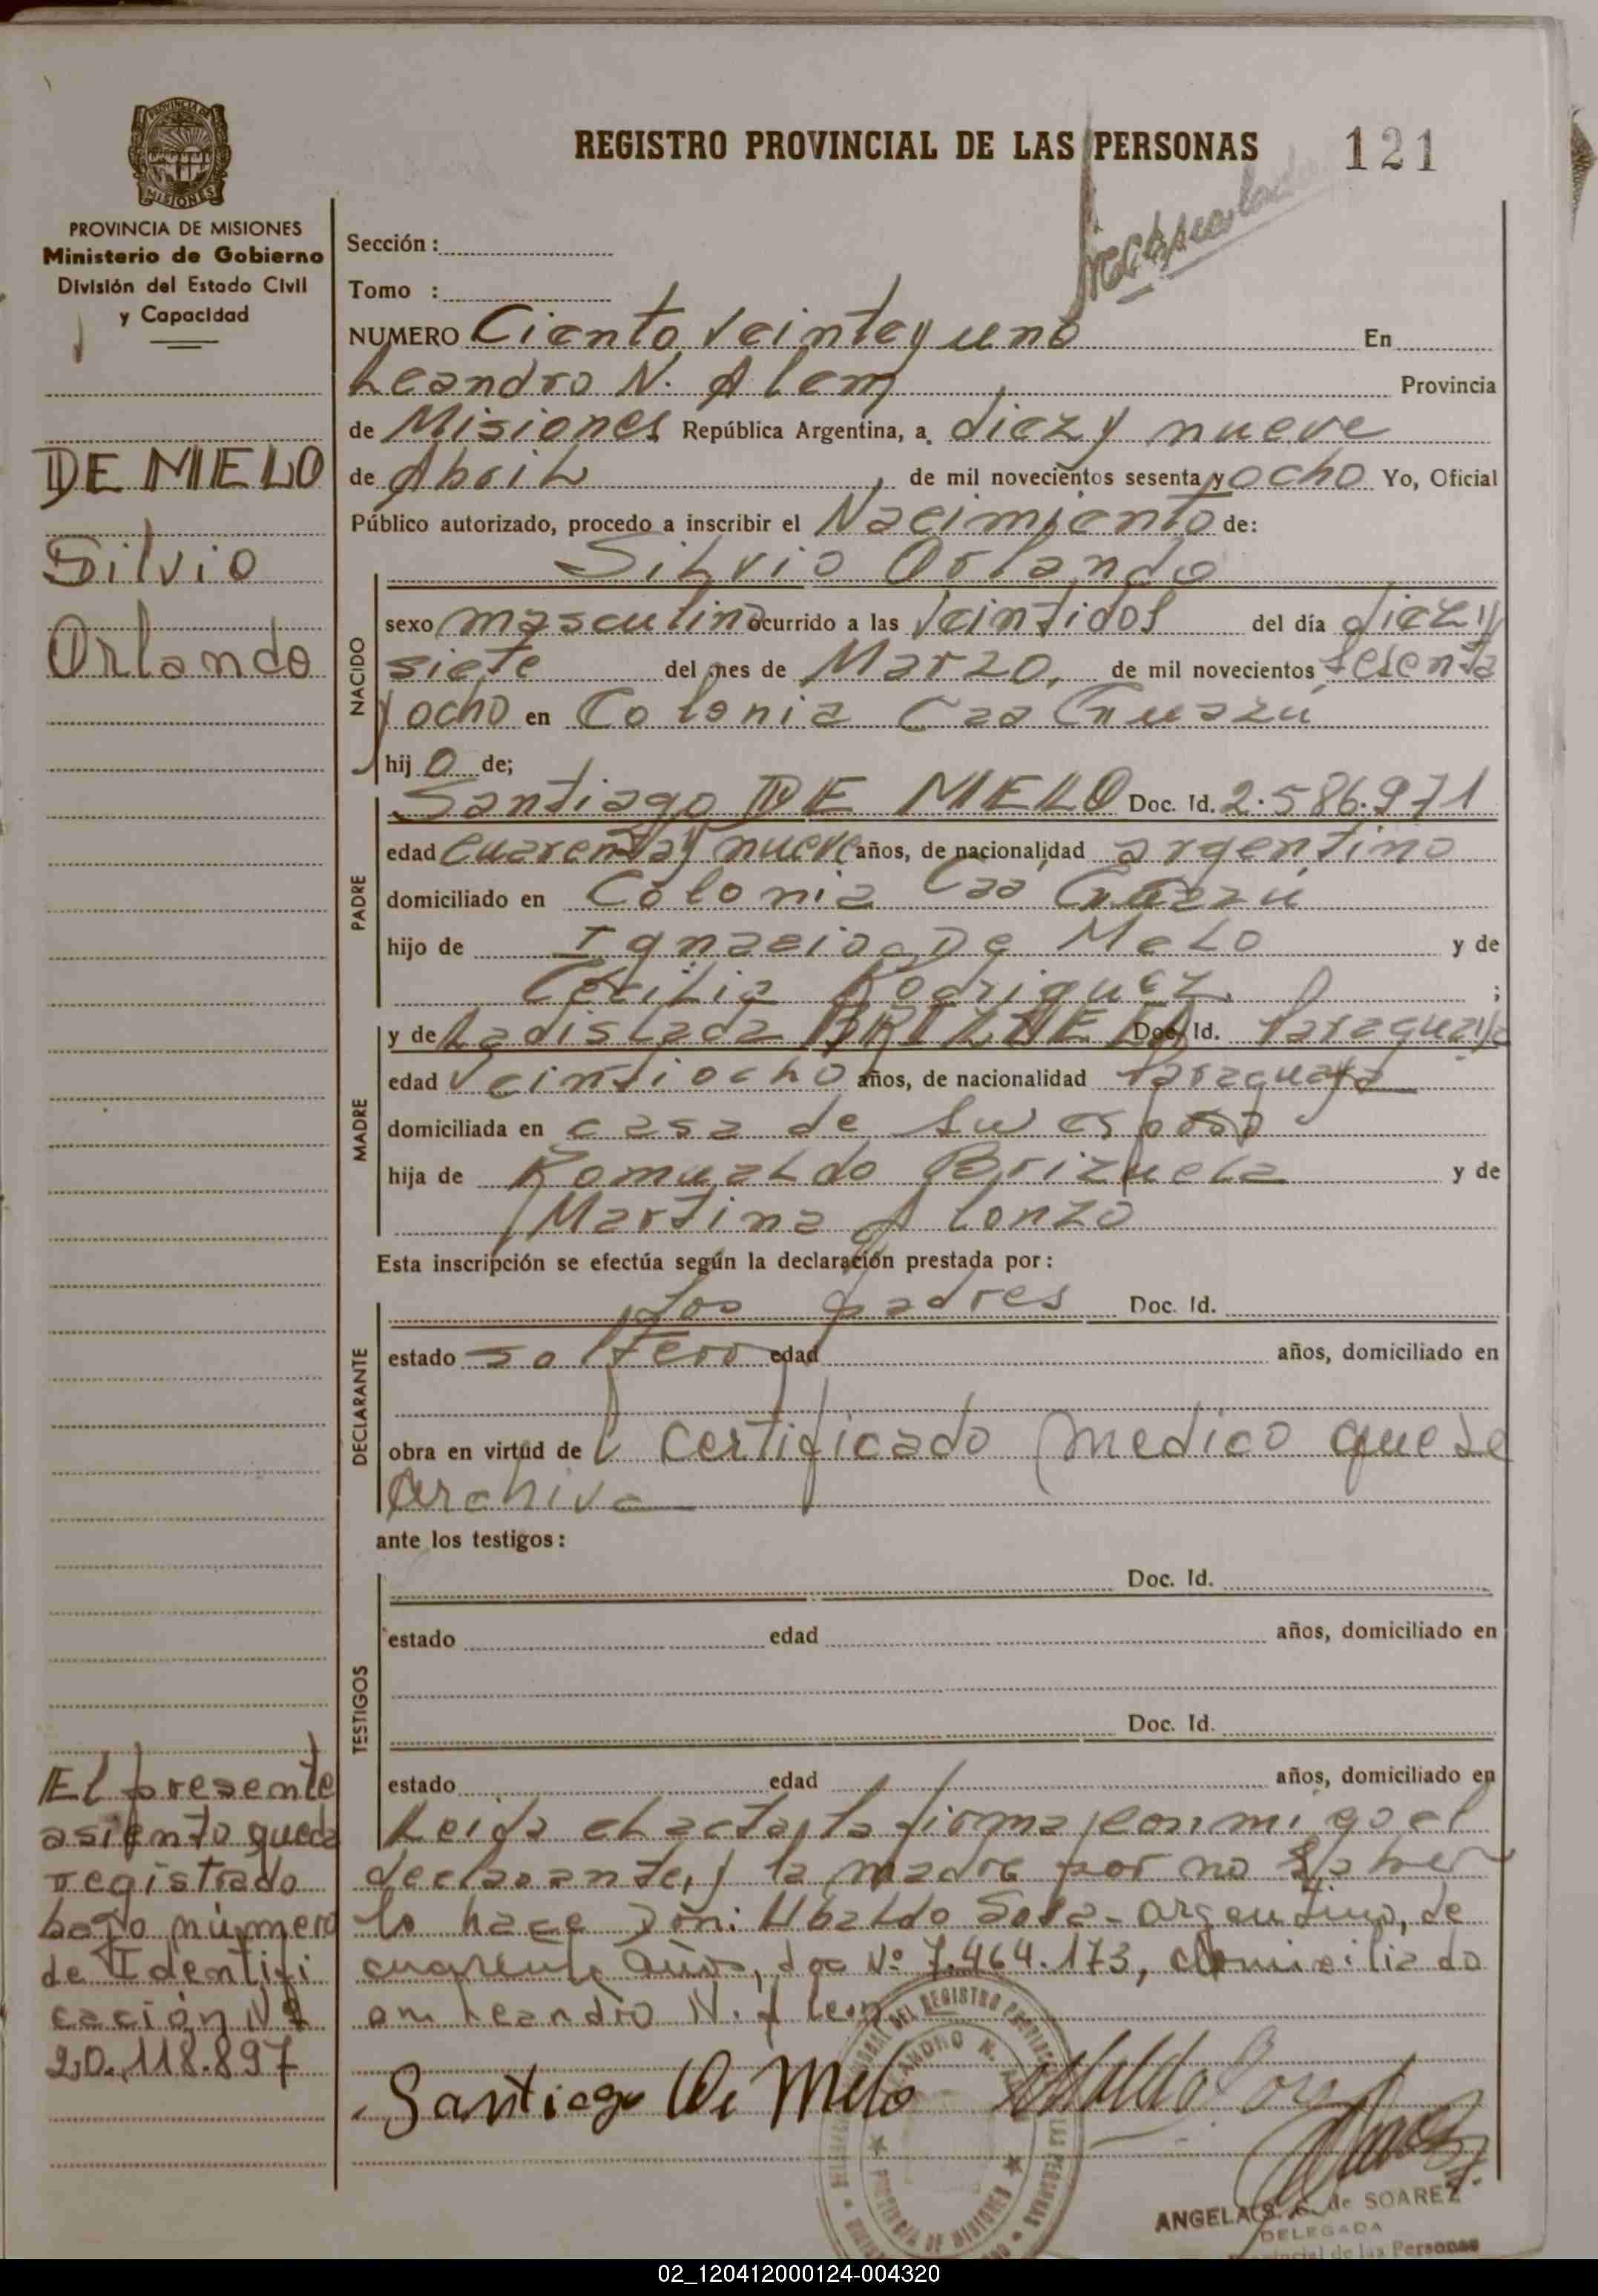 REGISTRO PROVINCIAL DE LAS PERSONAS 121
MISIONES
PROVINCIA DE MISIONES
Ministerio de Gobierno
División del Estado Civil
y Capacidad
DE MELO
Silvio
Orlando
El presente
asiento queda
registrado
bajo número
de Identifi
cación Nº
20.118.897
Sección :
Tomo :
NUMERO Ciento Veinte y uno En
Leandro N. Alem Provincia
de Misiones República Argentina, a diez y nueve
de Abril, de mil novecientos sesenta y ocho Yo, Oficial
Público autorizado, procedo a inscribir el Nacimiento de:
Silvio Orlando
NACIDO
sexo masculino ocurrido a las Veintidos del día diez y
siete del mes de Marzo, de mil novecientos sesenta
y ocho en Colonia Caa Guazú
hijo de;
PADRE
Santiago DE MELO Doc. Id. 2.586.971
edad cuarenta y nueve años, de nacionalidad argentino
domiciliado en Colonia Caa Guazú
hijo de Ignacio De Melo y de
Cecilia Rodriguez ;
MADRE
y de Ladislada BRIZUELA Doc. Id. Paraguaya
edad Veintiocho años, de nacionalidad Paraguaya
domiciliada en casa de su esposo
hija de Romualdo Brizuela y de
Martina Alonzo
Esta inscripción se efectúa según la declaración prestada por :
DECLARANTE
Los padres Doc. Id.
estado soltero edad años, domiciliado en
obra en virtud de certificado medico que se
Archiva
ante los testigos :
TESTIGOS
Doc. Id.
estado edad años, domiciliado en
Doc. Id.
estado edad años, domiciliado en
Leida el acta, la firma conmigo el
declarante, y la madre por no saber
lo hace Don: Ubaldo Sosa - argentino, de
cuarenta años, doc Nº 7.464.173, domiciliado
en Leandro N. Alem
Santiago De Melo
ANGELA S. de SOAREZ
DELEGADA
Provincial de las Personas
PROVINCIA DE MISIONES
02_120412000124-004320